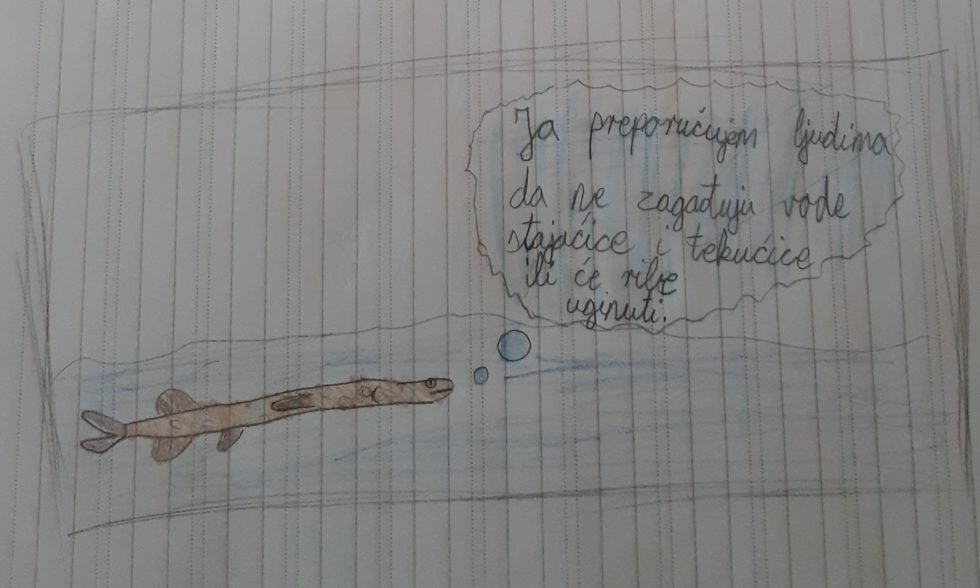 Ja preporućujem ljudima
da ne zagađuju vode
stajaćice i tekućice
ili će ribe
uginuti.